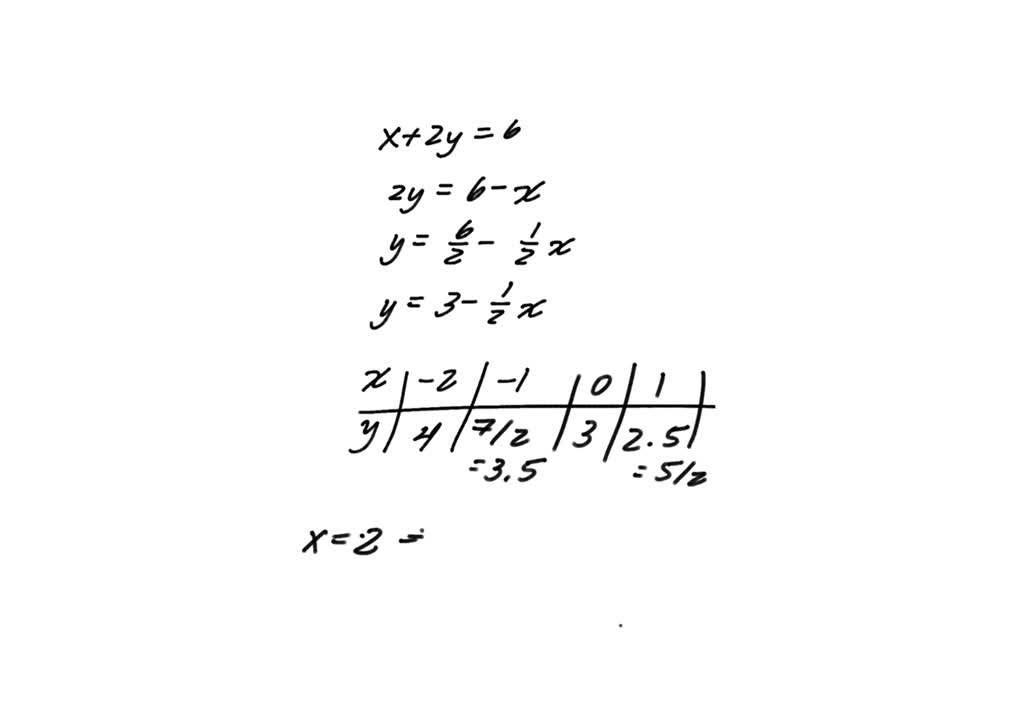 x+2y=6
2y = 6-x
y = 6/2 - 1/2 x
y = 3 - 1/2 x
x | -2 | -1 | 0 | 1 |
y | 4 | 7/2 | 3 | 2.5 |
=3.5 = 5/2
x = 2 =